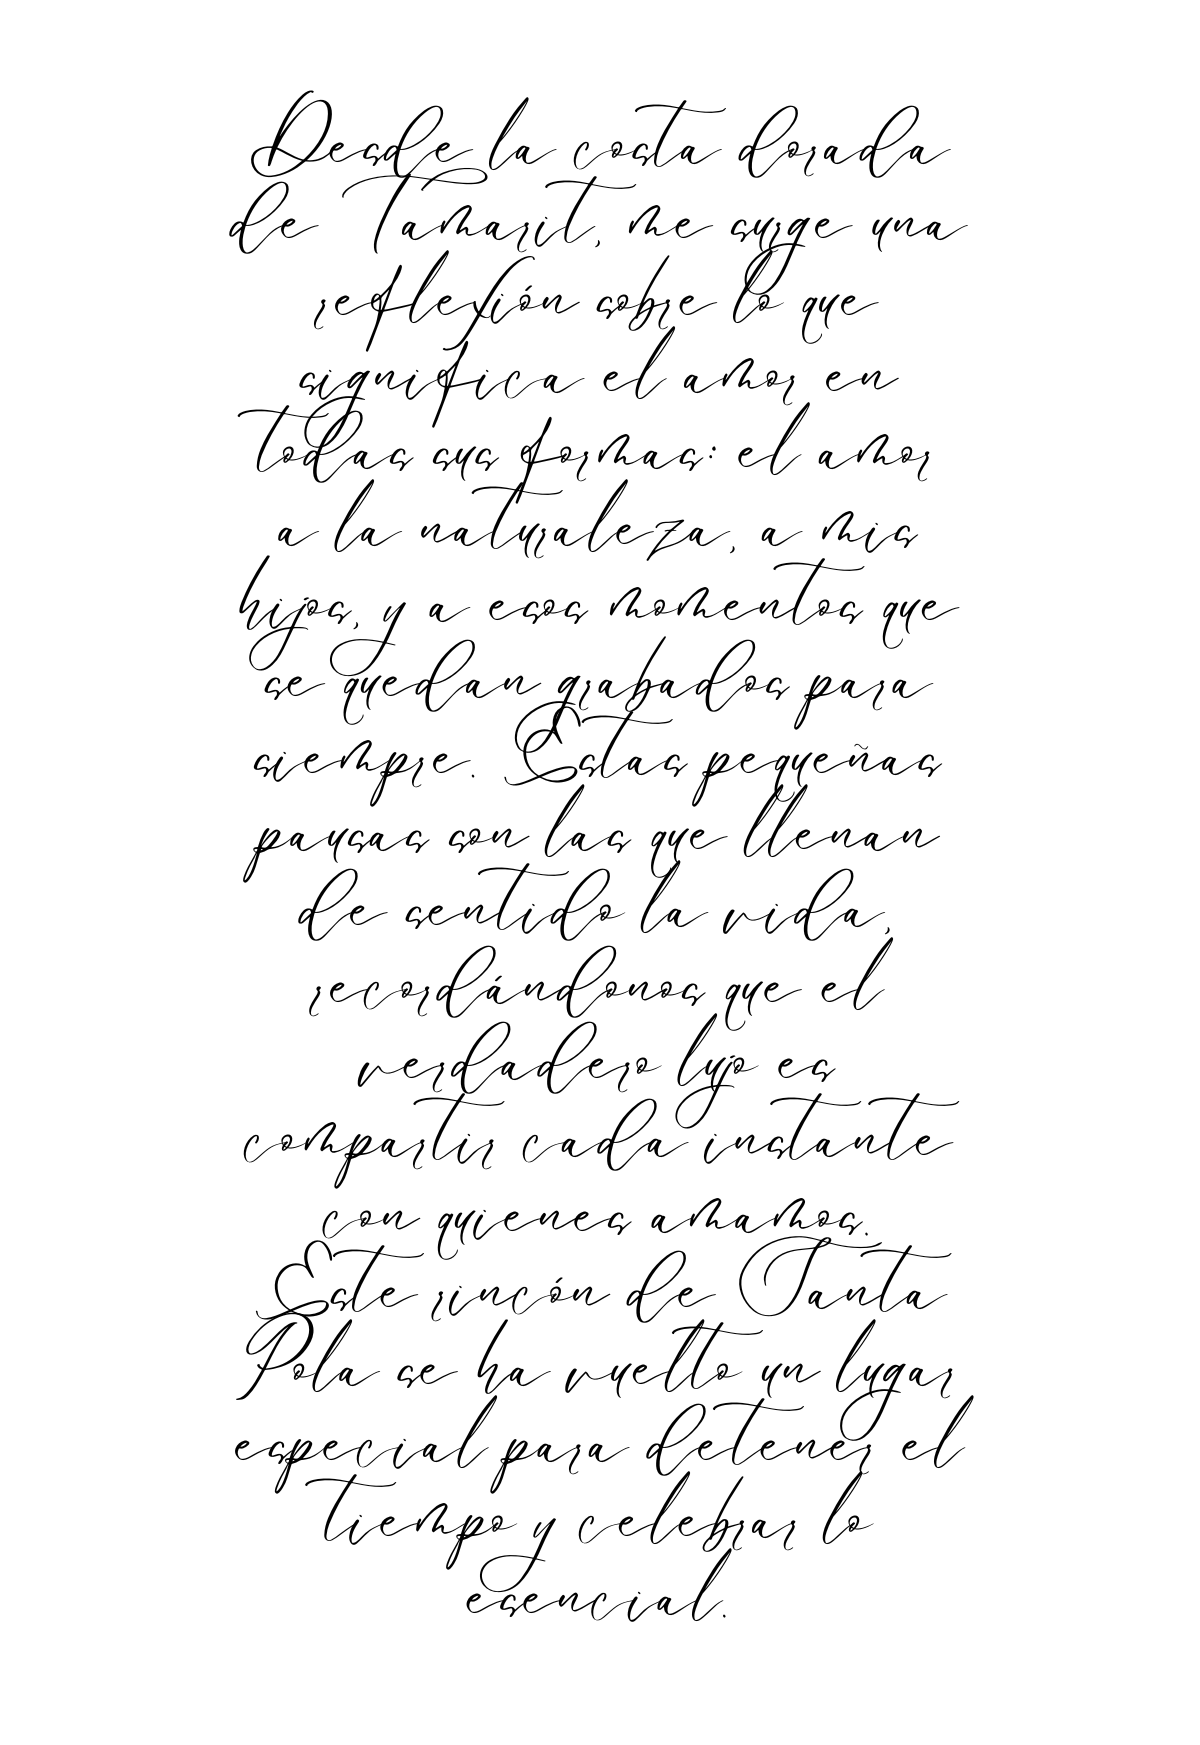 Desde la costa dorada
de Tamarit, me surge una
reflexión sobre lo que
significa el amor en
todas sus formas: el amor
a la naturaleza, a mis
hijos, y a esos momentos que
se quedan grabados para
siempre. Estas pequeñas
pausas son las que llenan
de sentido la vida,
recordándonos que el
verdadero lujo es
compartir cada instante
con quienes amamos.
Este rincón de Santa
Pola se ha vuelto un lugar
especial para detener el
tiempo y celebrar lo
esencial.